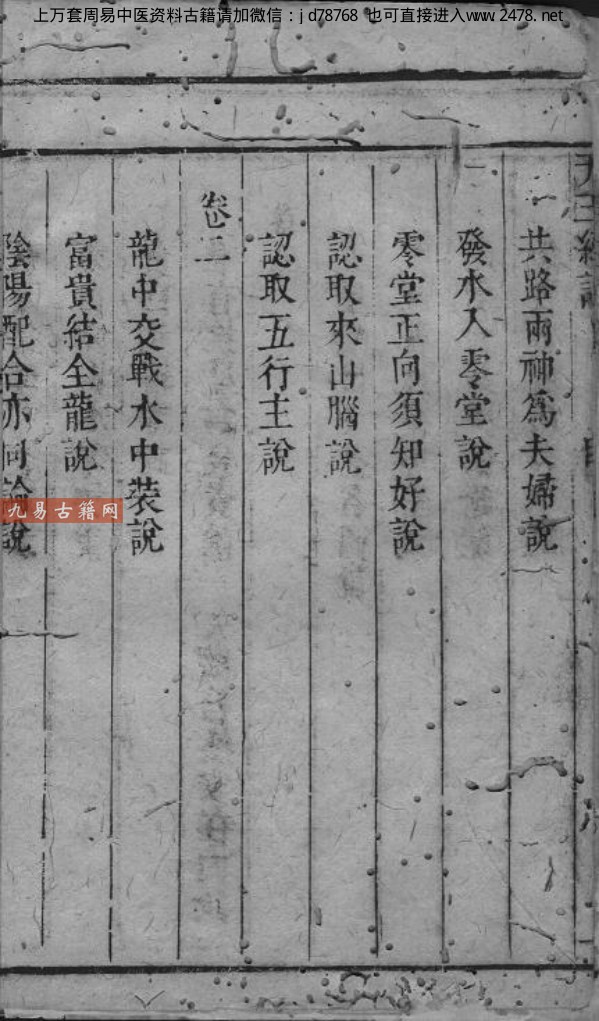 上万套周易中医资料古籍请加微信：jd78768 也可直接进入www.2478.net
共路兩神爲夫婦說
發水入零堂說
零堂正向須知好說
認取來山腦說
認取五行主說
卷二
龍中交戰水中裝說
富貴結全龍說
陰陽配合亦同論說
九易古籍网